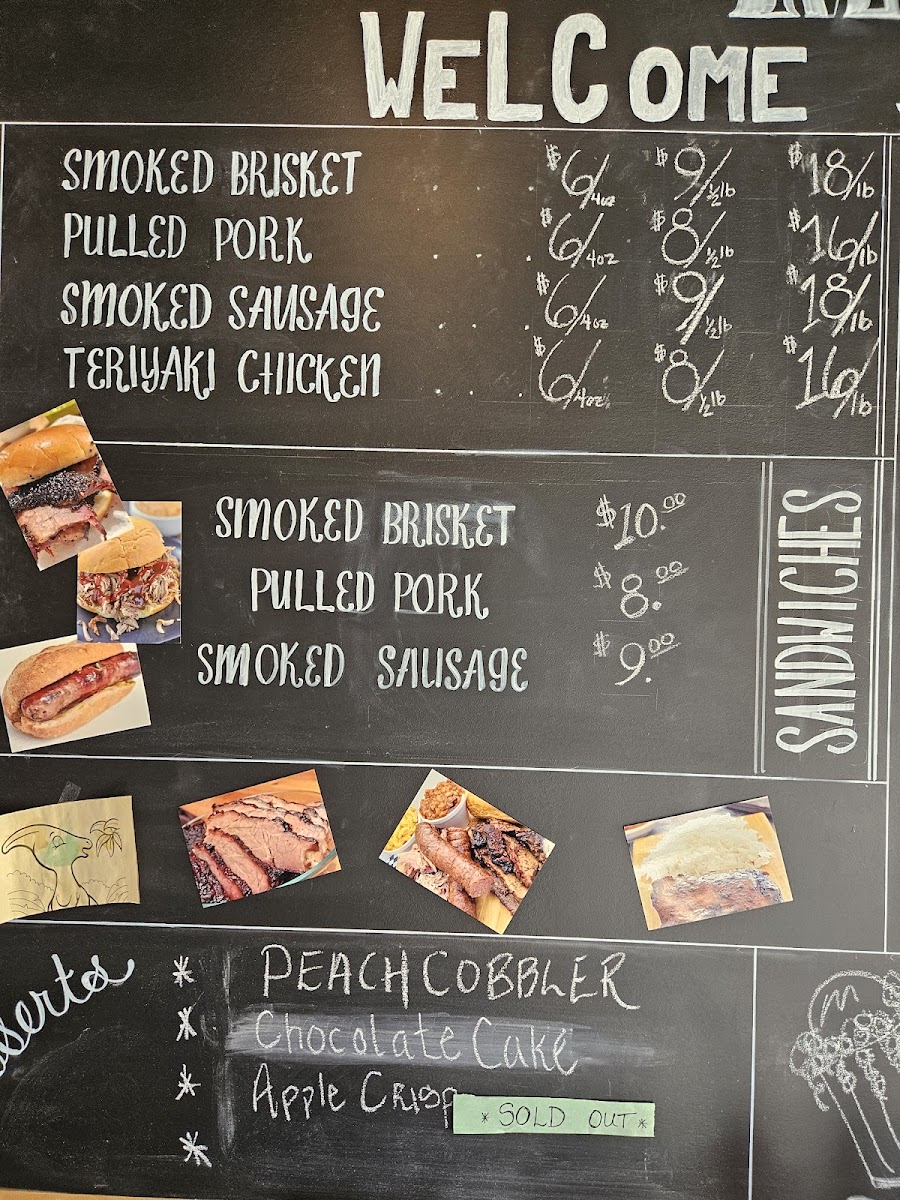 WELCOME
SMOKED BRISKET . . . $6/4oz $9/½lb $18/lb
PULLED PORK . . . $6/4oz $8/½lb $16/lb
SMOKED SAUSAGE . . . $6/4oz $9/½lb $18/lb
TERIYAKI CHICKEN . . . $6/4oz $8/½lb $16/lb
SANDWICHES
SMOKED BRISKET $10.00
PULLED PORK $8.00
SMOKED SAUSAGE $9.00
* PEACH COBBLER
* Chocolate Cake
* Apple Crisp
* SOLD OUT *
*